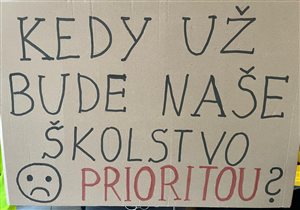 KEDY UŽ
BUDE NAŠE
ŠKOLSTVO
PRIORITOU?